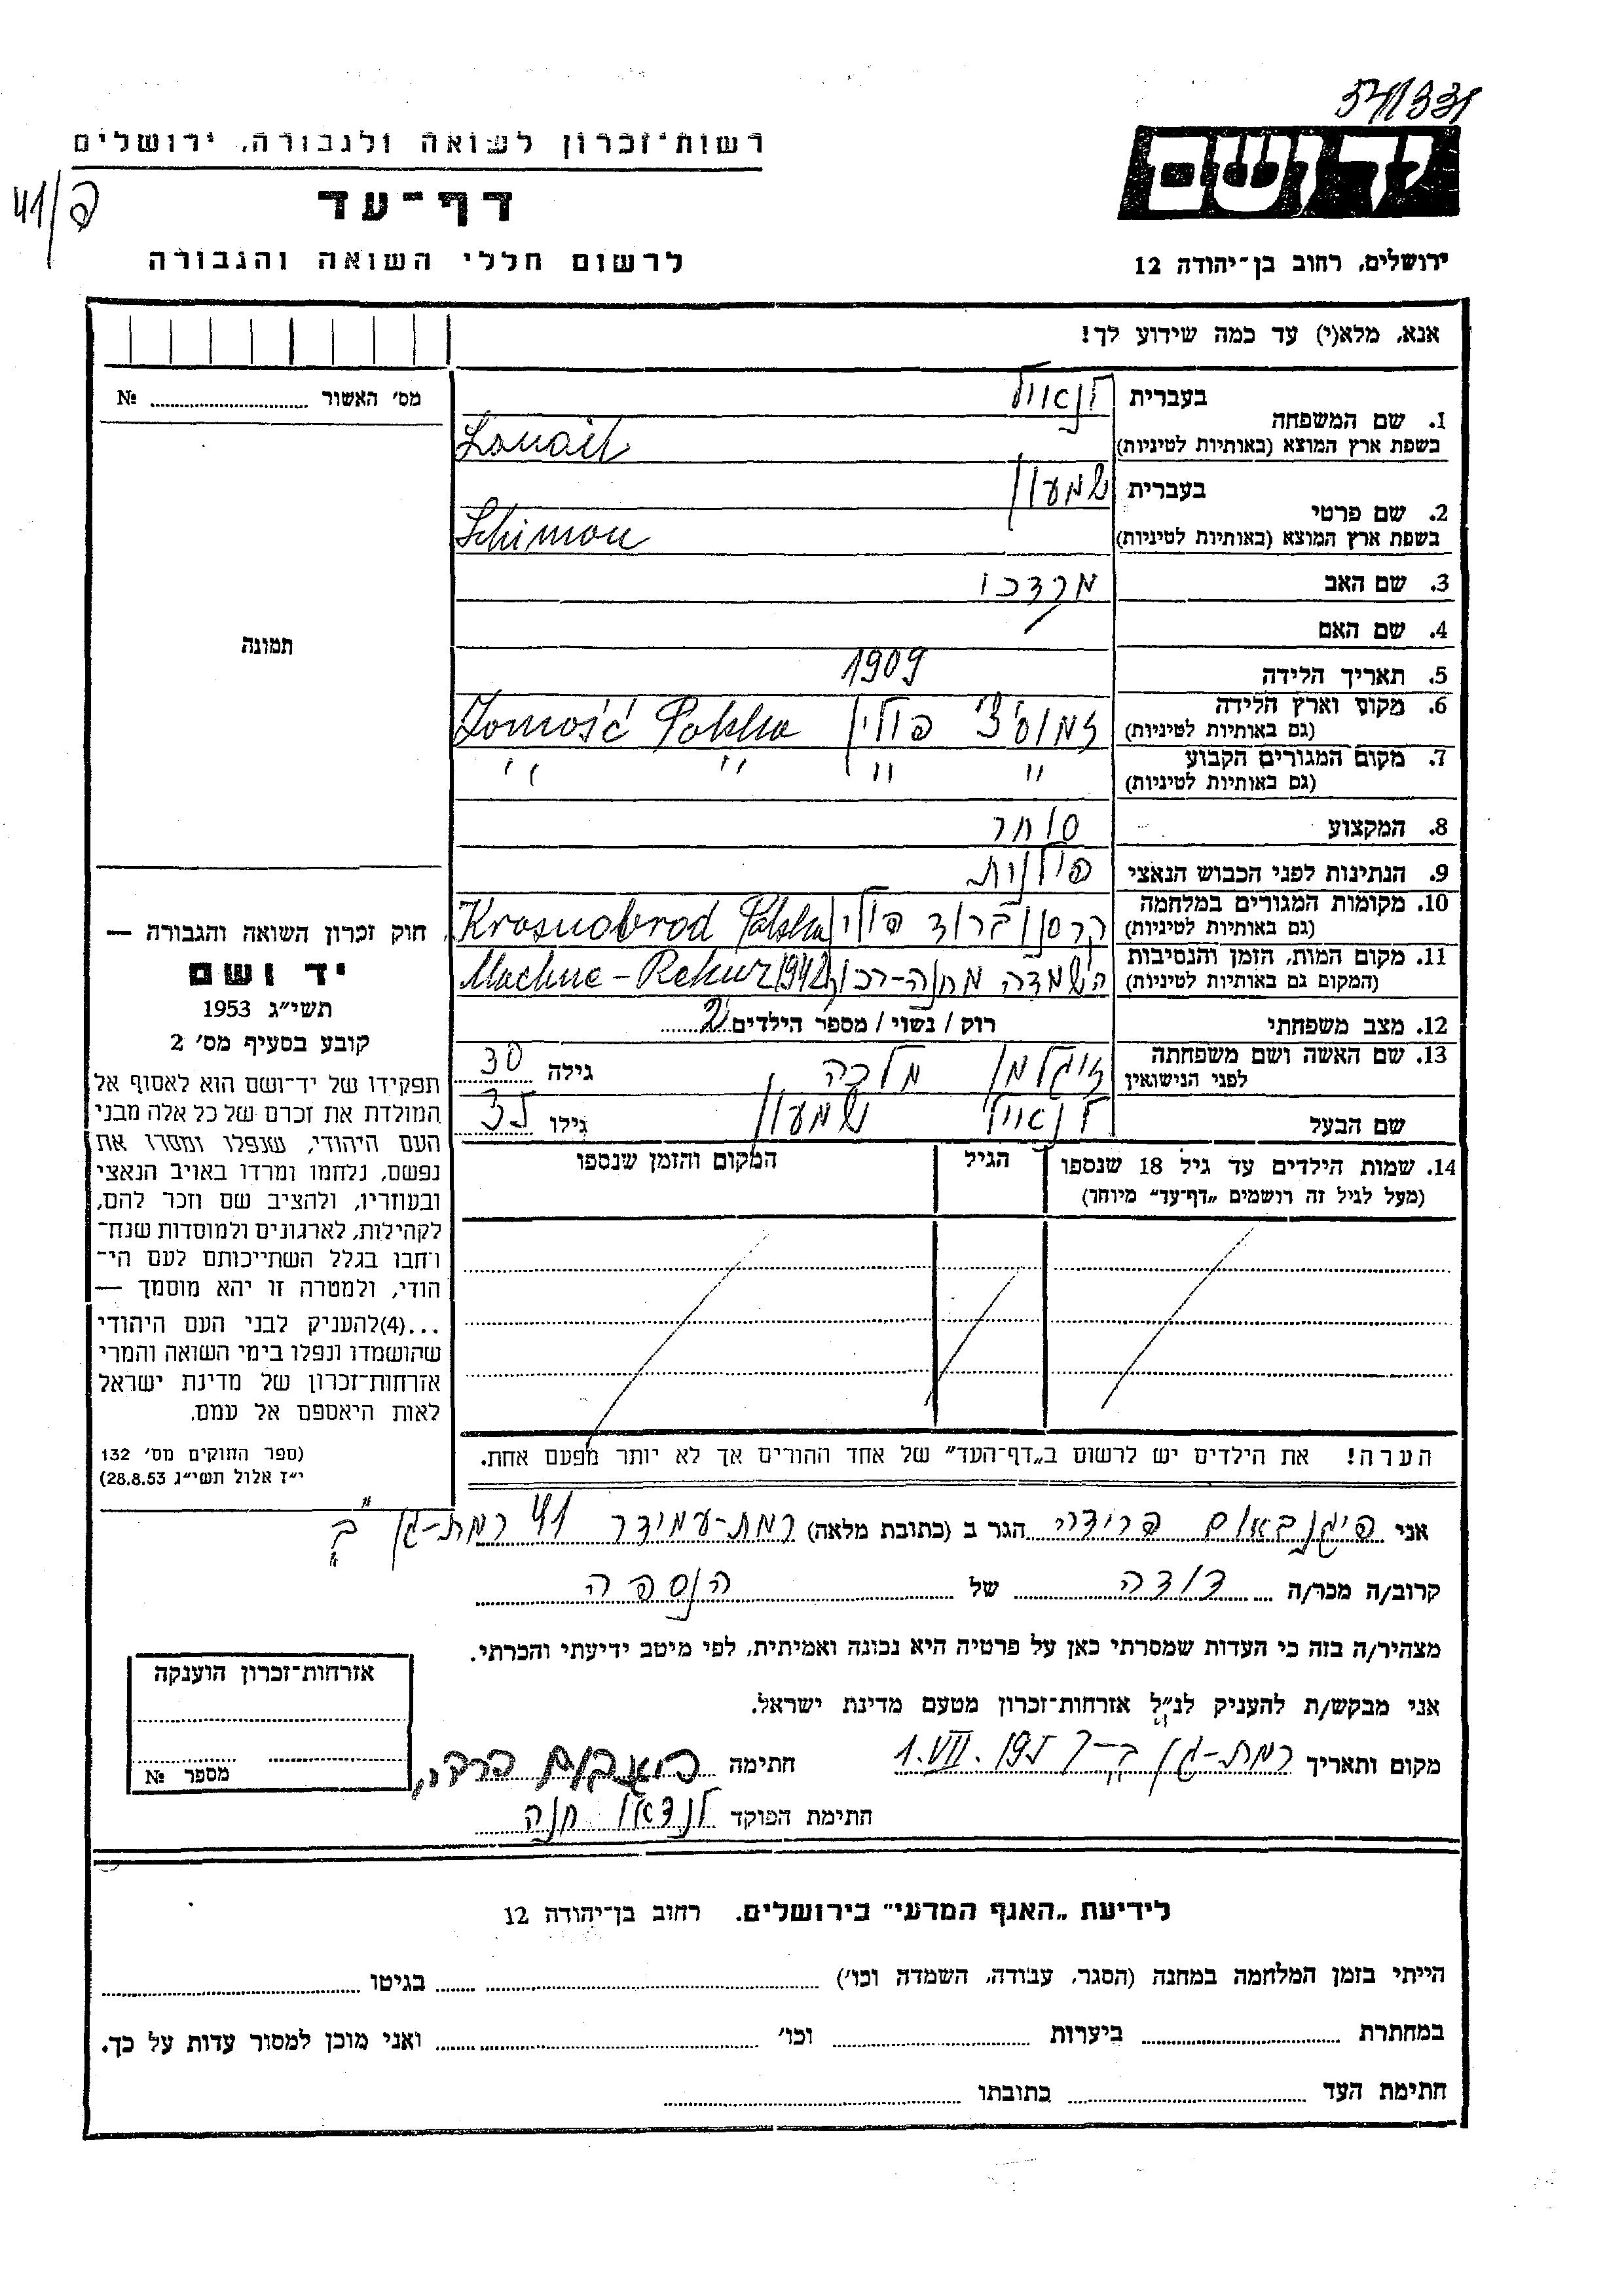 רשות־זכרון לשואה ולגבורה, ירושלים
דף־עד
לרשום חללי השואה והגבורה
ידושם
ירושלים, רחוב בן־יהודה 12
אנא, מלא(י) עד כמה שידוע לך!
מס׳ האשור № ..........
תמונה
1. שם המשפחה
בעברית
בשפת ארץ המוצא (באותיות לטיניות)
2. שם פרטי
בעברית שמעון
בשפת ארץ המוצא (באותיות לטיניות) Schimon
3. שם האב מרדכי
4. שם האם
5. תאריך הלידה 1909
6. מקום וארץ הלידה (גם באותיות לטיניות) פולין Zomość Polska
7. מקום המגורים הקבוע (גם באותיות לטיניות) " " " "
8. המקצוע סוחר
9. הנתינות לפני הכבוש הנאצי פולנית
10. מקומות המגורים במלחמה (גם באותיות לטיניות) קרסנוברוד פולין Krasnobrod Polska
11. מקום המות, הזמן והנסיבות (המקום גם באותיות לטיניות) השמדה 1942 Machne-
12. מצב משפחתי רוק / נשוי / מספר הילדים 2
13. שם האשה ושם משפחתה לפני הנישואין זיגלמן מלכה גילה 30
שם הבעל שמעון גילו
14. שמות הילדים עד גיל 18 שנספו (מעל לגיל זה רושמים „דף־עד״ מיוחד)
הגיל
המקום והזמן שנספו
הערה! את הילדים יש לרשום ב„דף־העד״ של אחד ההורים אך לא יותר מפעם אחת.
חוק זכרון השואה והגבורה —
יד ושם
תשי״ג 1953
קובע בסעיף מס׳ 2
תפקידו של יד־ושם הוא לאסוף אל
המולדת את זכרם של כל אלה מבני
העם היהודי, שנפלו ומסרו את
נפשם, נלחמו ומרדו באויב הנאצי
ובעוזריו, ולהציב שם וזכר להם,
לקהילות, לארגונים ולמוסדות שנח־
רחבו בגלל השתייכותם לעם הי־
הודי, ולמטרה זו יהא מוסמך —
...(4)להעניק לבני העם היהודי
שהושמדו ונפלו בימי השואה והמרי
אזרחות־זכרון של מדינת ישראל
לאות היאספם אל עמם.
(ספר החוקים מס׳ 132
י״ז אלול תשי״ג 28.8.53)
אני פיגנבאום הגר ב (כתובת מלאה) רמת-עמידר 41 רמת-גן ב׳
קרוב/ה מכר/ה דודה של הנספה
מצהיר/ה בזה כי העדות שמסרתי כאן על פרטיה היא נכונה ואמיתית, לפי מיטב ידיעתי והכרתי.
אני מבקש/ת להעניק לנ״ל אזרחות־זכרון מטעם מדינת ישראל.
מקום ותאריך רמת-גן 1.VII.195 חתימה
חתימת הפוקד לנדאו חנה
אזרחות־זכרון הוענקה
מספר №
לידיעת „האגף המדעי״ בירושלים. רחוב בן־יהודה 12
הייתי בזמן המלחמה במחנה (הסגר, עבודה, השמדה וכו׳) .......... בגיטו ..........
במחתרת .......... ביערות .......... וכו׳ .......... ואני מוכן למסור עדות על כך.
חתימת העד .......... כתובתו ..........